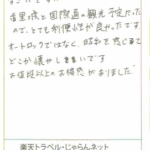 首里城と国際通の観光予定だった
ので、とても利便性が良かったです
オートロックではなく、昭和を感じる
どこか懐かしいまいです
お値段以上のお部屋がありました
楽天トラベル・じゃらんネット